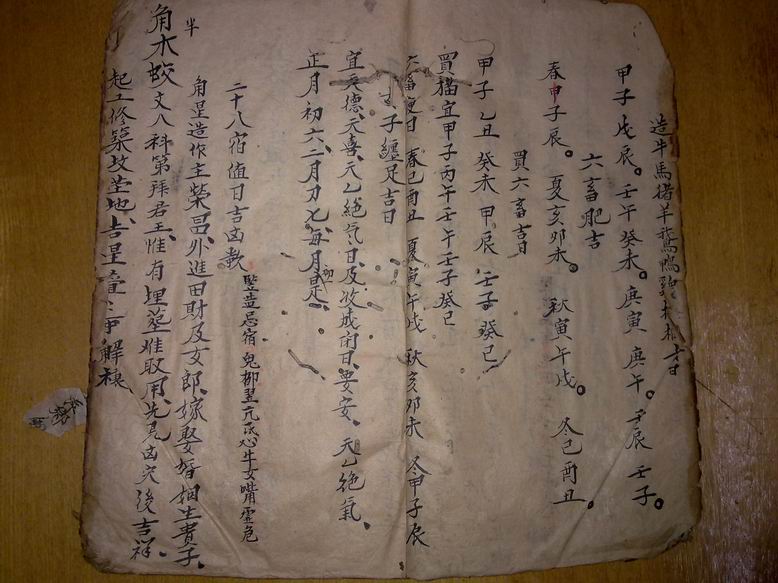 造牛馬猪羊鵞鴨
甲子 戊辰。壬午 癸未。庚寅 庚午。壬辰 壬子。
六畜肥吉
春甲子辰。 夏亥卯未。 秋寅午戌。 冬巳酉丑。
買六畜吉日
甲子 乙丑 癸未 甲辰 壬子 癸巳
買猫宜甲子丙午壬午壬子癸巳
春巳酉丑 夏寅午戌 秋亥卯未 冬甲子辰
子纏足吉日
宜 德、天喜、天乙絕气日、及收成闭日、要安、天乙絕氣、
正月初六、二月初七、每月是
二十八宿值日吉凶歌
竪造忌宿 鬼柳翌亢氐心牛女嘴虚危
角星造作主榮昌、外進田財及女郎、嫁娶婚姻生貴子、
半
角木蛟 文八科第拜君王、惟有埋葬难取用、先見凶灾後吉祥、
起工修築坟茔地、吉星 解禳